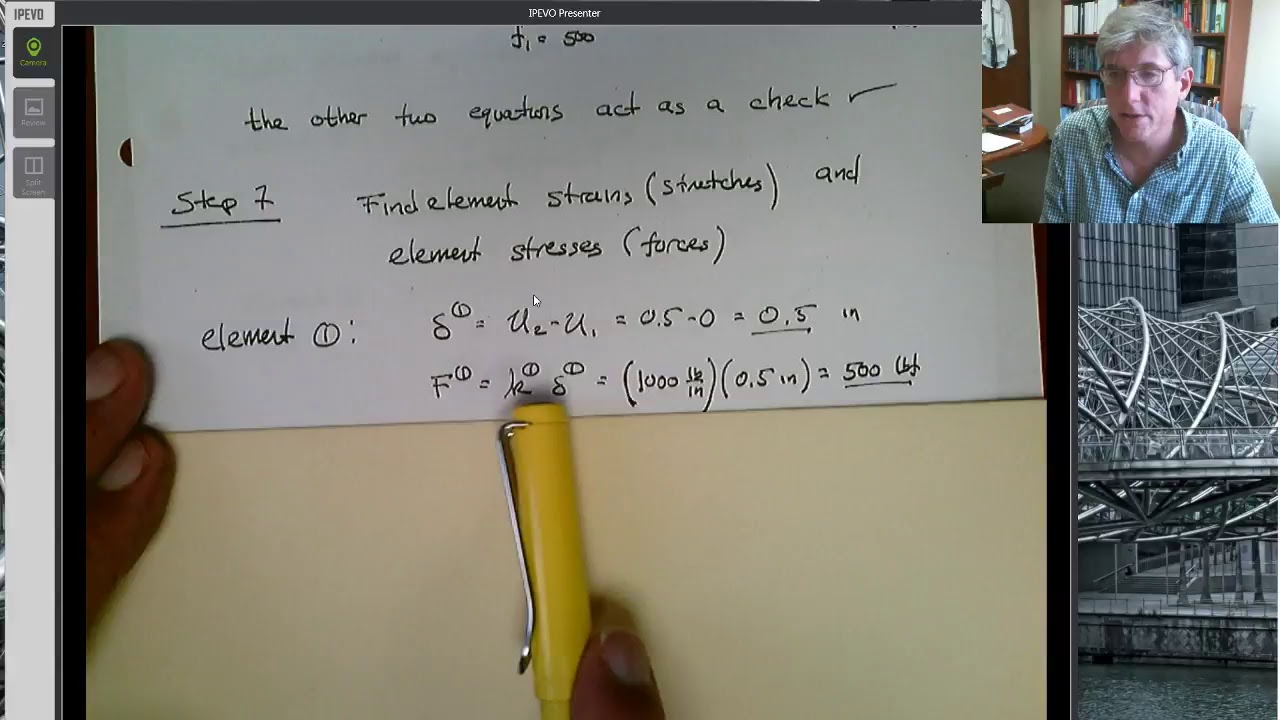 IPEVO
IPEVO Presenter
Camera
Review
Split
Screen
f₁ = 500
the other two equations act as a check ✓
Step 7 Find element strains (stretches) and
element stresses (forces)
element ①: δ^① = U₂-U₁ = 0.5-0 = 0.5 in
F^① = k^① δ^① = (1000 lb/in)(0.5 in) = 500 lbf